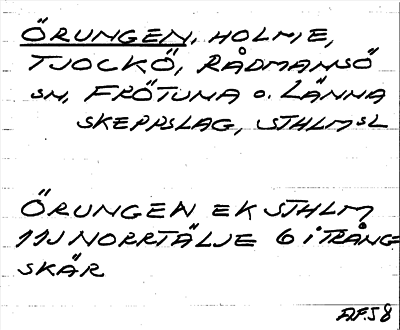 ÖRUNGEN, HOLME,
TJOCKÖ, RÅDMANSÖ
SN, FRÖTUNA O. LÄNNA
SKEPPSLAG, STHLMSL
ÖRUNGEN EK STHLM
11J NORRTÄLJE 6 i TRÅNG-
SKÄR
AF58